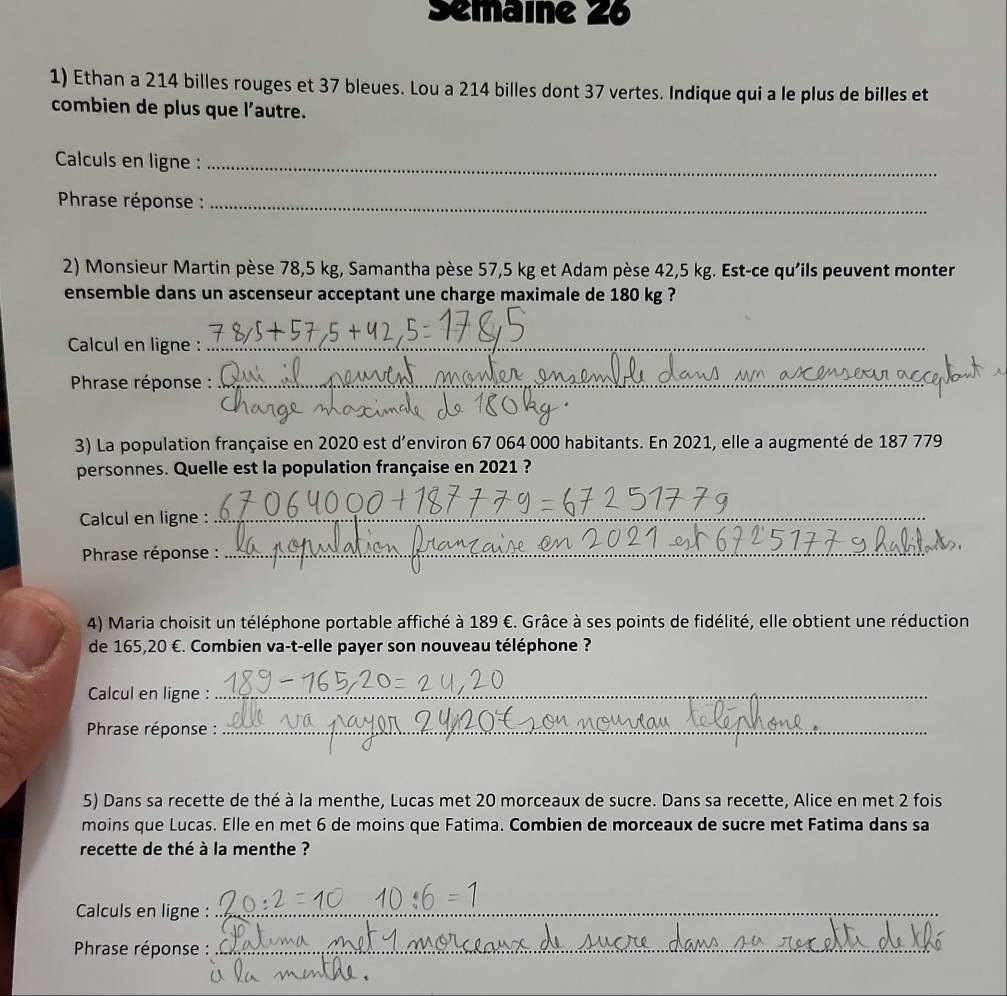 Semaine 26
1) Ethan a 214 billes rouges et 37 bleues. Lou a 214 billes dont 37 vertes. Indique qui a le plus de billes et
combien de plus que l'autre.
Calculs en ligne :
Phrase réponse :
2) Monsieur Martin pèse 78,5 kg, Samantha pèse 57,5 kg et Adam pèse 42,5 kg. Est-ce qu'ils peuvent monter
ensemble dans un ascenseur acceptant une charge maximale de 180 kg ?
Calcul en ligne : 78,5+57,5+42,5=178,5
Phrase réponse : Qui il peuvent monter ensemble dans un ascenseur acceptant
charge maximale de 180kg.
3) La population française en 2020 est d'environ 67 064 000 habitants. En 2021, elle a augmenté de 187 779
personnes. Quelle est la population française en 2021 ?
Calcul en ligne : 67064000+187779=67251779
Phrase réponse : la population françaire en 2021 est 67251779 habitants.
4) Maria choisit un téléphone portable affiché à 189 €. Grâce à ses points de fidélité, elle obtient une réduction
de 165,20 €. Combien va-t-elle payer son nouveau téléphone ?
Calcul en ligne : 189-165,20=24,20
Phrase réponse : elle va payer 24,20€ son nouveau téléphone.
5) Dans sa recette de thé à la menthe, Lucas met 20 morceaux de sucre. Dans sa recette, Alice en met 2 fois
moins que Lucas. Elle en met 6 de moins que Fatima. Combien de morceaux de sucre met Fatima dans sa
recette de thé à la menthe ?
Calculs en ligne : 20:2=10 10:6=1
Phrase réponse : Fatima met 1 morceaux de sucre dans sa recette de thé
à la menthe.